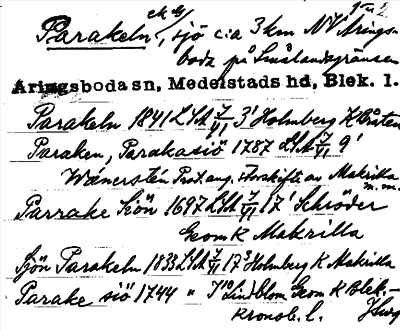 Parakeln, sjö c:a 3 km NV Årings-
boda på Smålandsgränsen
Åringsboda sn, Medelstads hd, Blek. l.
Parakeln 1841 LSA 7/VI 3¹ Holmberg K
Paraken, Parakasiö 1787 LSA 7/VI 9¹
Prot ang. Makrilla m.m.
Parrake Siön 1697 LSA 7/VI 17¹ Schröder
Geom K Makrilla
Sjön Parakeln 1833 LSA 7/VI 17³ Holmberg K Makrilla
Parake siö 1744 " J¹⁰ Lindblom Geom K Blek.-
Kronob. l.